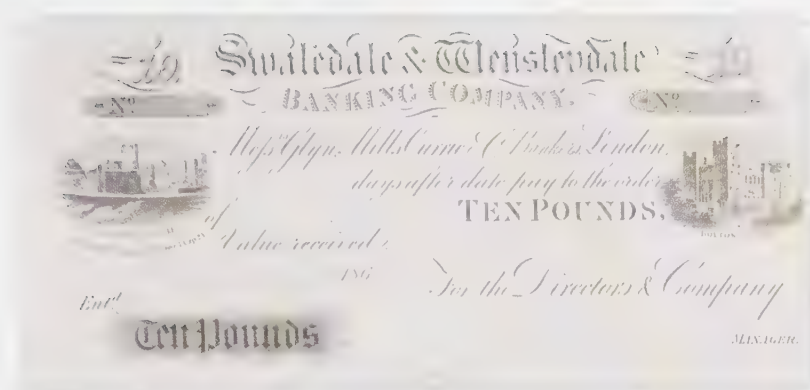 £10. Swaledale & Wensleydale £10
Nº BANKING COMPANY. Nº
Messrs Glyn, Mills, Currie & Co Bankers, London.
days after date pay to the order
of TEN POUNDS,
Value received.
186
For the Directors & Company
Entd.
Ten Pounds
MANAGER.